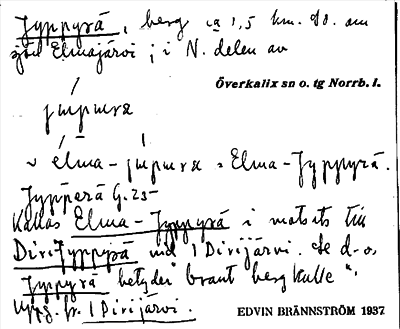 Jyppyrä, berg ca 1,5 km. SO. om
sjön Elmajärvi ; i N. delen av
Överkalix sn o. tg Norrb. l.
jupura
élma-jupura = Elma-Jyppyrä.
Jypperä G. 25
Kallas Elma-Jyppyrä i motsats till
DiriJyppyrä vid 1 Dirijärvi. Se d.o.
Jyppyrä betyder brant berg kulle".
Uppg. fr. 1 Dirijärvi.
EDVIN BRÄNNSTRÖM 1937